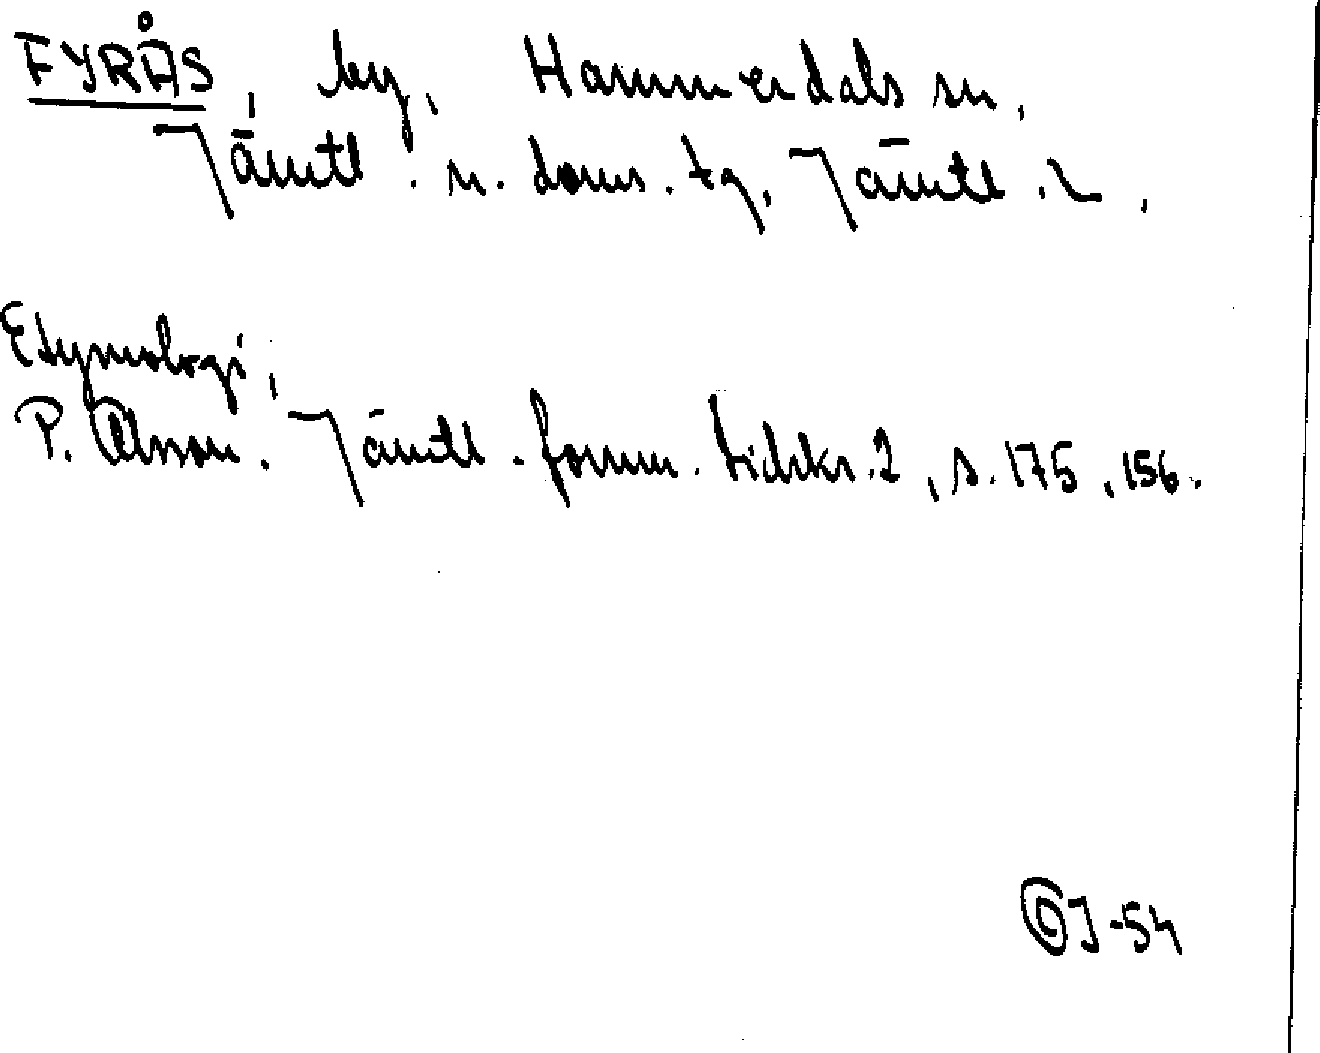 FYRÅS, by, Hammerdals sn,
Jämtl. n. doms. tg, Jämtl. l.
Etymologi,
P. Olsson. Jämtl. fornm. tidskr. 2, s. 175, 156.
J-54